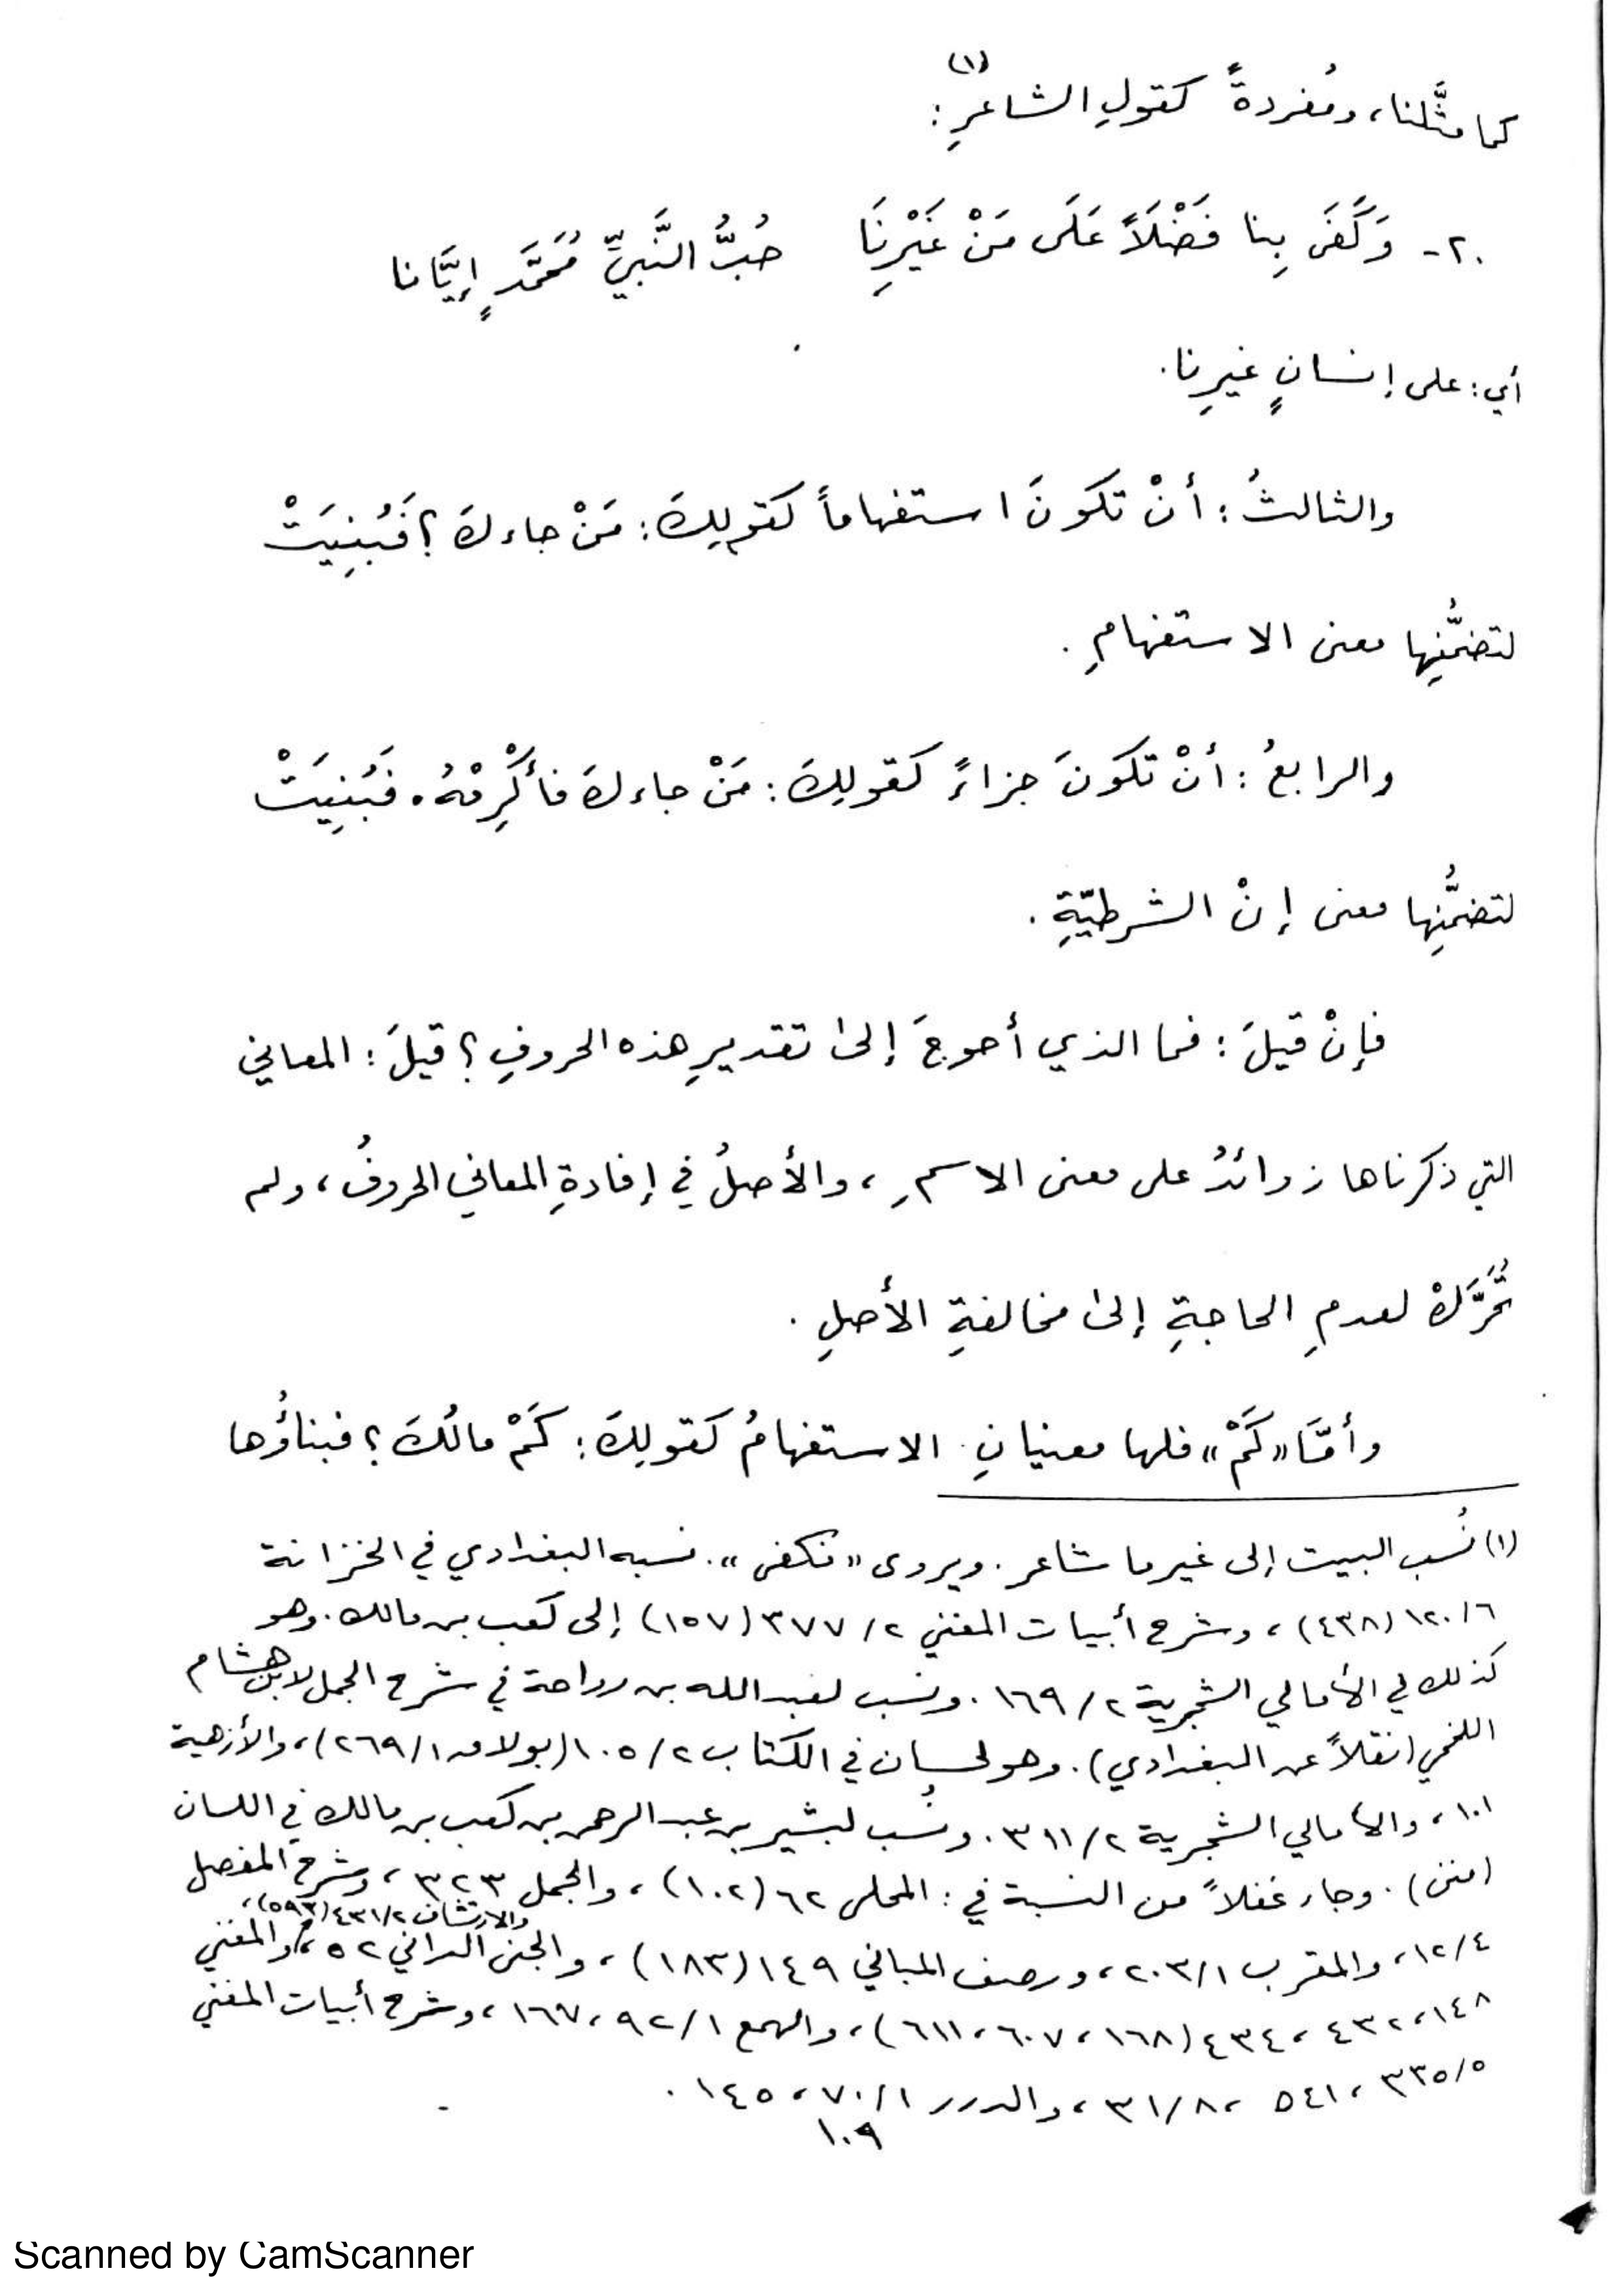 كما مثَّلنا، ومُفردةً كقولِ الشاعرِ(١):
٢٠- وَكَفَى بِنا فَضْلَاً عَلَى مَنْ غَيْرِنَا حُبُّ النَّبيِّ مُحَمَّدٍ إِيَّانا
أي: على إنسانٍ غيرِنا.
والثالثُ: أنْ تكونَ استفهاماً كقولِكَ: مَنْ جاءكَ؟ فَبُنِيَتْ
لتضمُّنِها معنى الاستفهامِ.
والرابعُ: أنْ تكونَ جزاءً كقولِكَ: مَنْ جاءكَ فأَكْرِمْهُ. فَبُنِيَتْ
لتضمُّنِها معنى إنْ الشرطيّةِ.
فإنْ قيلَ: فما الذي أحوجَ إلى تقديرِ هذه الحروفِ؟ قيلَ: المعاني
التي ذكرناها زوائدُ على معنى الاسمِ، والأصلُ في إفادةِ المعاني الحروفُ، ولم
تُحَرَّكْ لعدمِ الحاجةِ إلى مخالفةِ الأصلِ.
وأمَّا «كَمْ» فلها معنيانِ. الاستفهامُ كقولِكَ: كَمْ مالُكَ؟ فبناؤُها
(١) نُسب البيت إلى غير ما شاعر. ويروى «فكفى». نسبه البغدادي في الخزانة
٦/ ١٢٠ (٤٣٨)، وشرح أبيات المغني ٢/ ٣٧٧ (١٥٧) إلى كعب بن مالك. وهو
كذلك في الأمالي الشجرية ٢/ ١٦٩. ونسب لعبد الله بن رواحة في شرح الجمل لابن هشام
اللخمي (نقلاً عن البغدادي). وهو لحسان في الكتاب ٢/ ١٠٥ (بولاق ١/ ٢٦٩)، والأزهية
١٠١، والأمالي الشجرية ٢/ ٣١١. ونُسب لبشير بن عبد الرحمن بن كعب بن مالك في اللسان
(منن). وجاء غفلاً من النسبة في: المحلى ٦٢ (١٠٢)، والجمل ٣٢٣، وشرح المفصل
والارتشاف ٢/ ٤٣١ (٥٩٣)،
٤/ ١٢، والمقرب ١/ ٢٠٣، ورصف المباني ١٤٩ (١٨٣)، والجنى الداني ٥٢، والمغني
١٤٨، ٤٣٢، ٤٣٤ (١٦٨، ٦٠٧، ٦١١)، والهمع ١/ ٩٢، ١٦٧، وشرح أبيات المغني
٥/ ٣٣٥، ٥٤١، ٨/ ٣١، والدرر ١/ ٧٠، ١٤٥.
١٠٩
Scanned by CamScanner